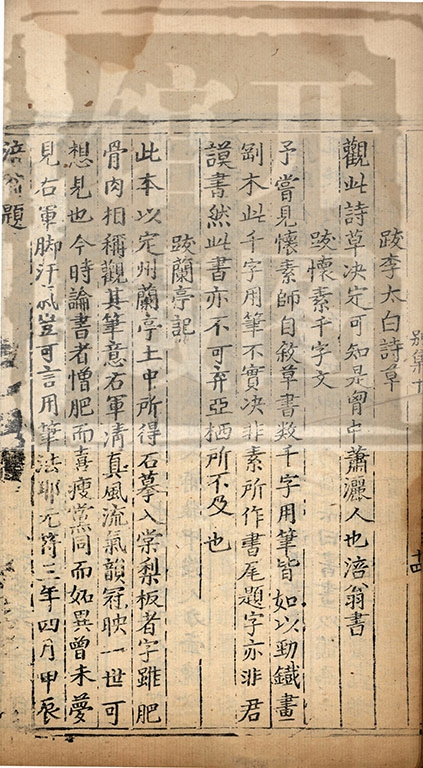 別集十
十四
跋李太白詩草
觀此詩草決定可知是胷中蕭灑人也涪翁書
跋懷素千字文
予嘗見懷素師自敘草書数千字用筆皆如以勁鐵畫
剛木此千字用筆不實决非素所作書尾題字亦非君
謨書然此書亦不可弃亞栖所不及也
跋蘭亭記
此本以定州蘭亭土中所得石摹入棠梨板者字雖肥
骨肉相稱觀其筆意右軍清真風流氣韻冠映一世可
想見也今時論書者憎肥而喜瘦黨同而妬異曾未夢
見右軍脚汗氣豈可言用筆法耶元符三年四月甲辰
涪翁題